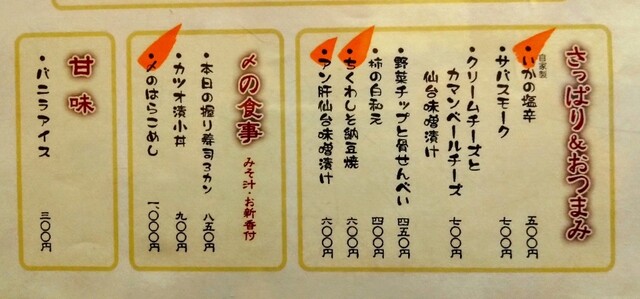 さっぱり&おつまみ
・自家製いかの塩辛 五〇〇円
・サバスモーク 七〇〇円
・クリームチーズと
カマンベールチーズ
仙台味噌漬け 七〇〇円
・野菜チップと骨せんべい 四五〇円
・柿の白和え 四〇〇円
・ちくわしそ納豆焼 六〇〇円
・アン肝仙台味噌漬け 六〇〇円
〆の食事 みそ汁・お新香付
・本日の握り寿司3カン 八五〇円
・カツオ漬小丼 九〇〇円
・〆のはらこめし 一、〇〇〇円
甘味
・バニラアイス 三〇〇円